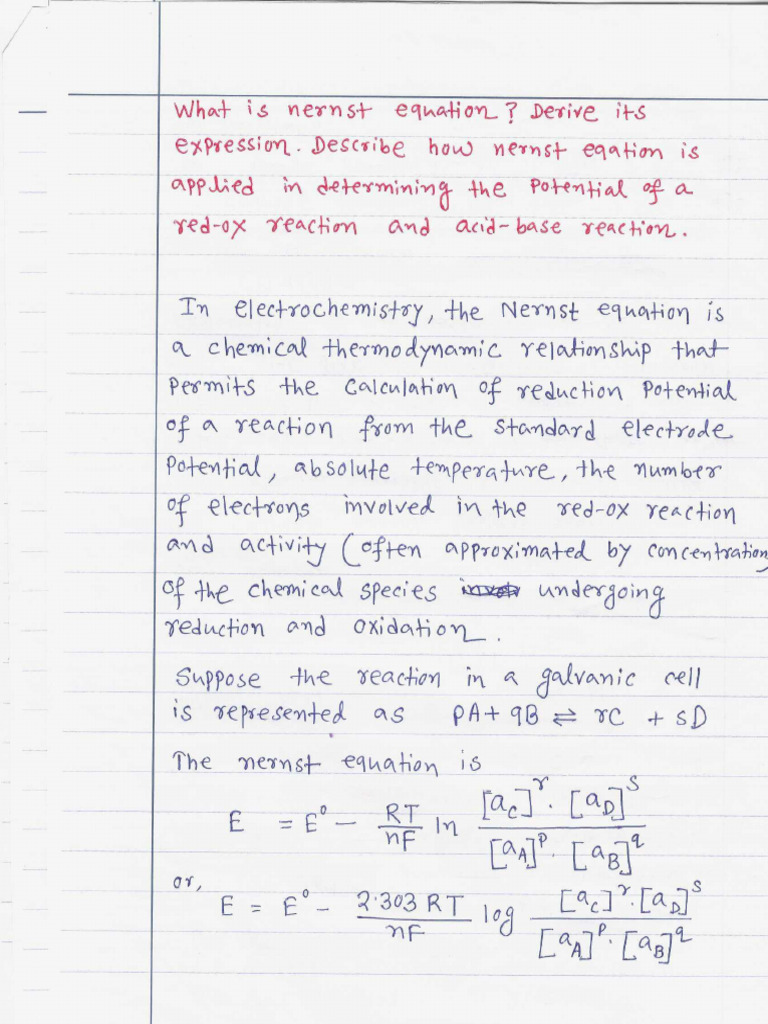 What is nernst equation? Derive its
expression. Describe how nernst eqation is
applied in determining the Potential of a
red-ox reaction and acid-base reaction.
In electrochemistry, the Nernst equation is
a chemical thermodynamic relationship that
Permits the Calculation of reduction Potential
of a reaction from the standard electrode
Potential, absolute temperature, the number
of electrons involved in the red-ox reaction
and activity (often approximated by concentration)
of the chemical species undergoing
reduction and oxidation.
Suppose the reaction in a galvanic cell
is represented as pA + qB ⇌ rC + sD
The nernst equation is
E = E° - RT/nF ln [a_C]^r · [a_D]^s / [a_A]^p · [a_B]^q
or,
E = E° - 2.303 RT/nF log [a_C]^r · [a_D]^s / [a_A]^p · [a_B]^q